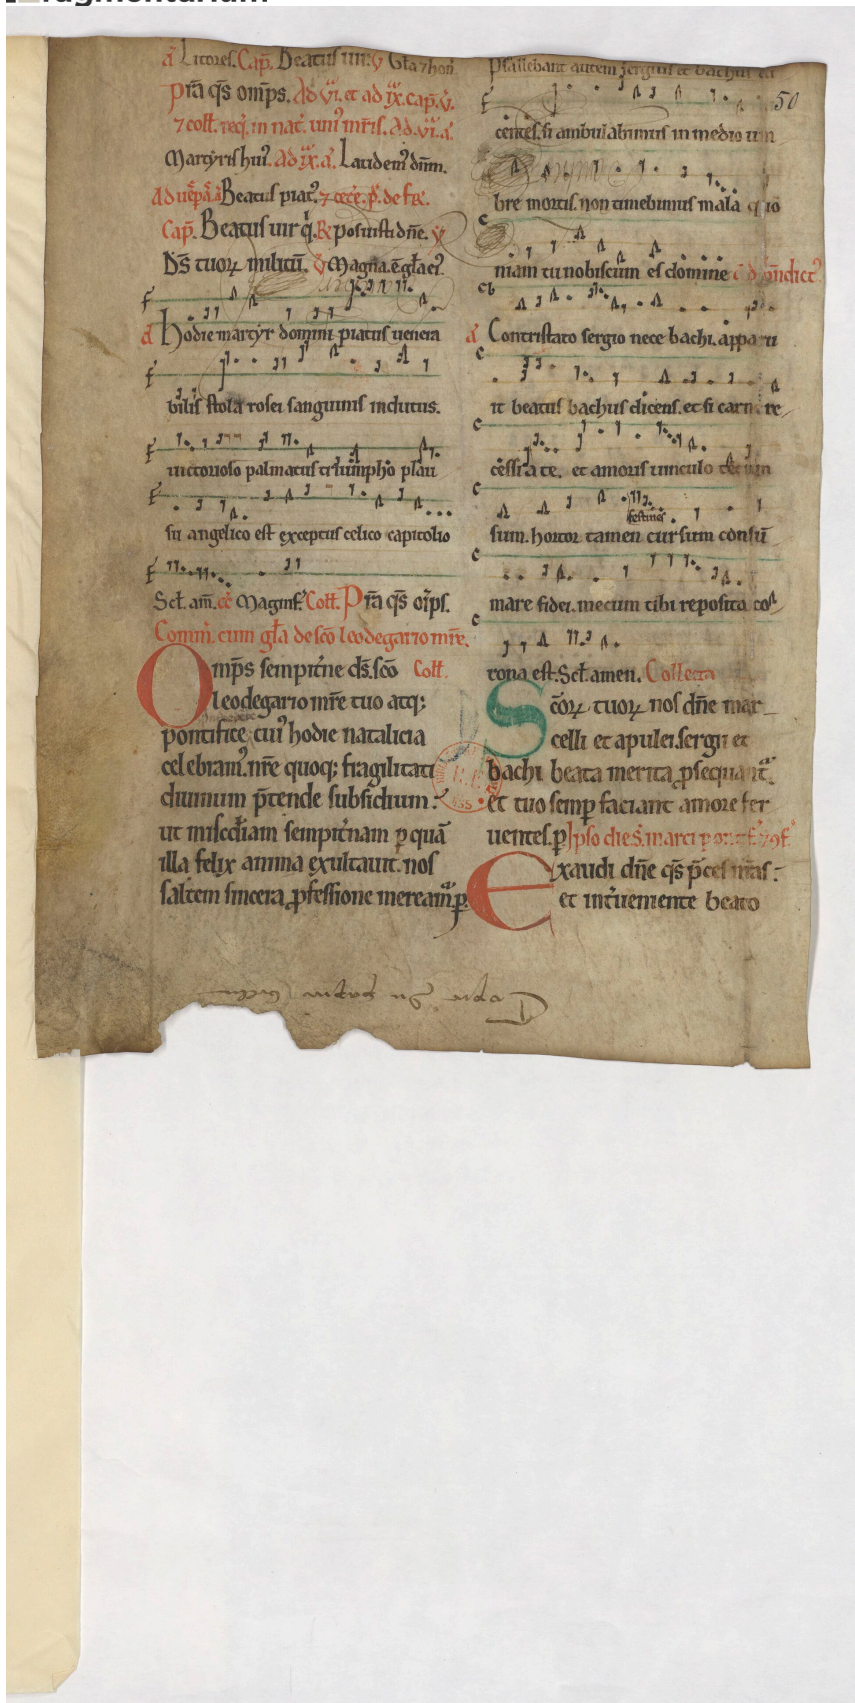 a Litores. Cap̄. Beatus uir. v̄ Gl̄a ⁊ hon̄
Pr̄a q̄s om̄ps. Ad vi. et ad ix. cap̄. v̄.
⁊ coll̄. req̄. in nat̄. uni᷒ mr̄is. Ad. vi. a᷒.
Martyris hui᷒. Ad ix. a᷒. Laudem᷒ dn̄m.
Beatus piat᷒. de
Cap̄. Beatus uir q̇. R̄ posuisti dn̄e. v̄
Ds̄ tuoꝝ militū. v̄ Magna. ē gl̄a ei᷒.
a᷒ Hodie martyr domini piatus uenera
bilis stola rosei sanguinis indutus.
uictorioso palmatus triumpho plau
su angelico est exceptus celico capitolio
Scl̄. am̄. Magnif᷒. Coll̄. Pr̄a q̄s om̄ps.
Comm̄. cum gl̄a de sc̄o leodegario mr̄e.
Omp̄s sempit̄ne ds̄. sc̄o Coll̄.
leodegario mr̄e tuo atq;
pontifice, cui᷒ hodie natalicia
celebram᷒. nr̄e quoq; fragilitati
diuinum p̄tende subsidium.
ut misc̄diam sempit̄nam ꝑ quā
illa felix anima exultauit. nos
saltem sincera ꝓfessione meream᷒. ꝑ.
Psallebant autem sergius et bachus
50
centes. si ambulabimus in medio um
bre mortis non timebimus mala quo
niam tu nobiscum es domine
a᷒ Contristato sergio nece bachi. apparu
it beatus bachus dicens. et si carne re
cessi a te. et amoris uinculo tecum
festines
sum. hortor tamen cursum consū
mare fidei. mecum tibi reposita co
rona est. Scl̄. amen. Collecta
Sc̄oꝝ tuoꝝ nos dn̄e mar
celli et apulei. sergii et
bachi beata merita ꝓsequant᷒.
et tuo semꝑ faciant amore fer
uentes. ꝑ Ipso die s̄. marci
Exaudi dn̄e q̄s p̄ces nr̄as:
et int̄ueniente beato